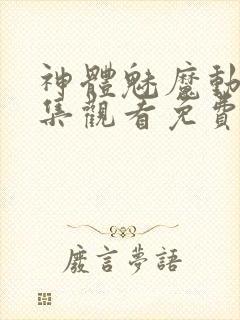 神體魅魔動
集觀看免費
廢言夢語